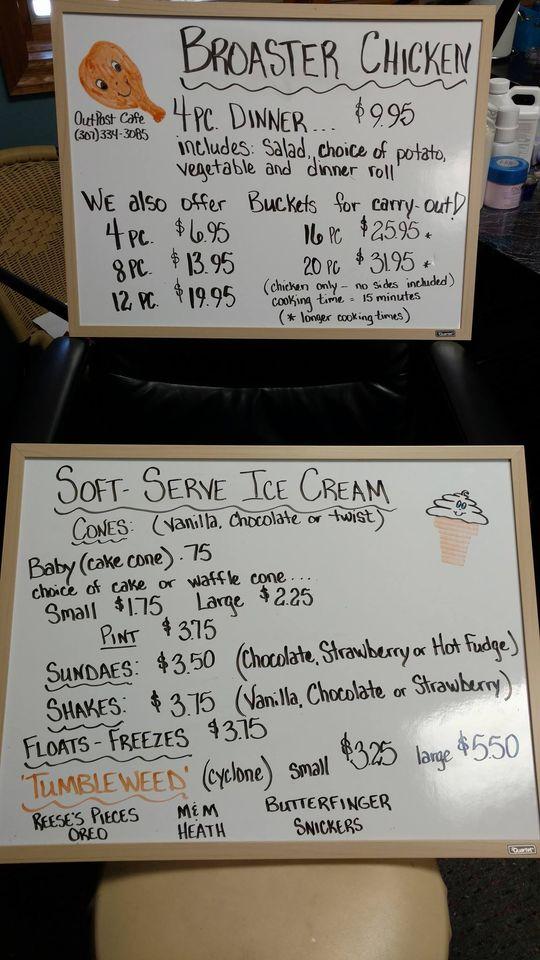 BROASTER CHICKEN
OutPost Cafe
(307)334-3085
4 PC. DINNER... $9.95
includes: Salad, choice of potato,
vegetable and dinner roll
WE also offer Buckets for carry-out!
4 PC. $6.95
8 PC. $13.95
12 PC. $19.95
16 PC $25.95 *
20 PC $31.95 *
(chicken only - no sides included)
cooking time = 15 minutes
(* longer cooking times)
Quartet
SOFT-SERVE ICE CREAM
CONES: (Vanilla, Chocolate or twist)
Baby (cake cone) .75
choice of cake or waffle cone....
Small $1.75 Large $2.25
PINT $3.75
SUNDAES: $3.50 (Chocolate, Strawberry or Hot Fudge)
SHAKES: $3.75 (Vanilla, Chocolate or Strawberry)
FLOATS-FREEZES $3.75
'TUMBLEWEED' (cyclone) small $3.25 large $5.50
REESE'S PIECES M&M BUTTERFINGER
OREO HEATH SNICKERS
Quartet